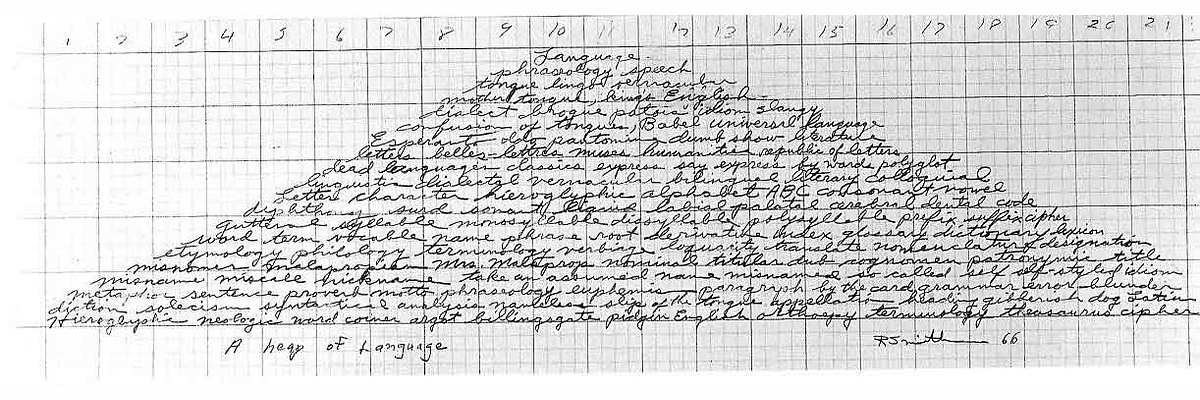 1 2 3 4 5 6 7 8 9 10 11 12 13 14 15 16 17 18 19 20 21
Language
phraseology speech
tongue lingo vernacular
mother tongue, kings English
dialect brogue patois idiom slangy
confusion of tongues, Babel universal language
Esperanto Ido pantomime dumb show literature
letters belles-lettres muses humanities republic of letters
dead languages classics express say express by words polyglot
linguistic dialectal vernacular bilingual literary colloquial
letter character hieroglyphic alphabet ABC consonant vowel
diphthong surd sonant liquid labial palatal cerebral dental code
guttural syllable monosyllable dissyllable polysyllable prefix suffix cipher
word term vocable name phrase root derivative index glossary dictionary lexicon
etymology philology terminology verbiage loquacity translate nomenclature designation
misnomer malapropism Mrs. Malaprop nominal titular dub cognomen patronymic title
misname miscall nickname take an assumed name misnamed so called self self-styled idiom
metaphor sentence proverb motto phraseology euphemism paragraph by the card, grammar error blunder
diction solecism syntactical analysis nameless slip of the tongue appellation heading gibberish dog Latin
Hieroglyphic neologic word coiner argot billingsgate pidgin English orthoepy terminology thesaurus cipher
A heap of Language
RSmithson 66